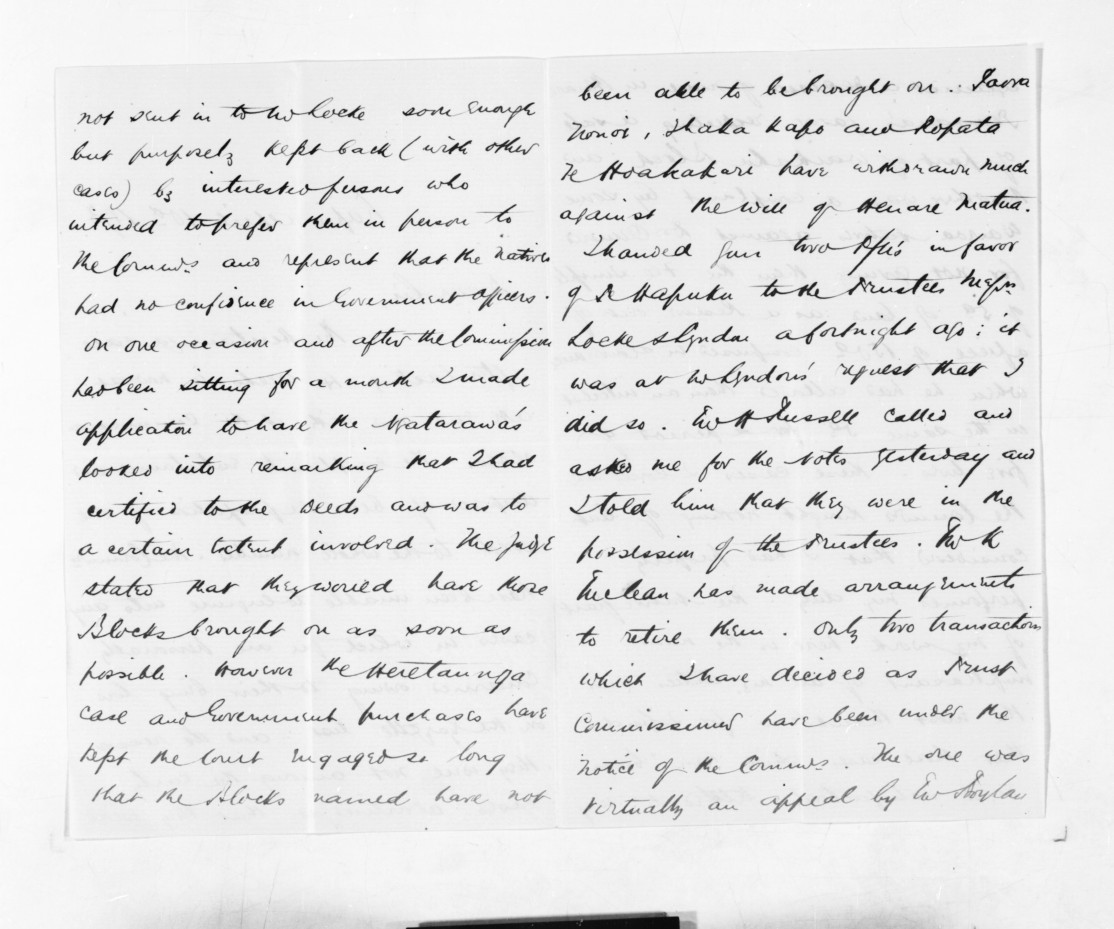 not sent in to Mr Locke soon enough
but purposely kept back (with other
cases) by interested persons who
intended to prefer them in person to
the Commrs and represent that the Natives
had no confidence in Government Officers.
on one occasion and after the Commission
had been sitting for a month I made
application to have the Matarawa's
looked into remarking that I had
certified to the Deeds and was to
a certain extent involved. The Judge
stated that they would have those
Blocks brought on as soon as
possible. However the Heretaunga
case and Government purchases have
kept the Court engaged so long
that the Blocks named have not
been able to be brought on. Paora
Nonoi, Ihaka Kapo and Ropata
Te Hoakakari have withdrawn much
against the will of Henare Matua.
I handed Gun two in favor
of Te Hapuku to the Trustees Messrs
Locke & Lyndon a fortnight ago; it
was at Mr Lyndon's request that I
did so. Mr H Russell called and
asked me for the Notes yesterday and
I told him that they were in the
possession of the Trustees. Mr
McLean has made arrangements
to retire them. Only two transactions
which I have decided as Trust
Commissioner have been under the
notice of the Commrs. The one was
virtually an appeal by Mr